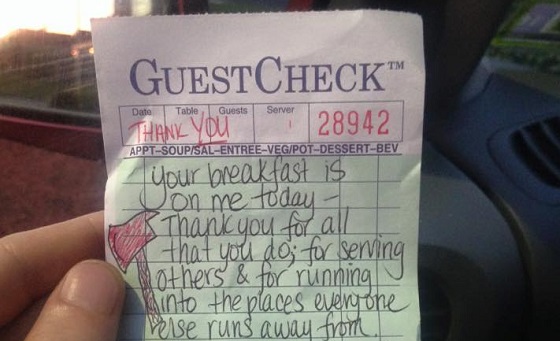 GUESTCHECK™
Date Table Guests Server
THANK YOU
28942
APPT-SOUP/SAL-ENTREE-VEG/POT-DESSERT-BEV
your breakfast is
on me today -
Thank you for all
that you do; for serving
others & for running
into the places everyone
else runs away from.